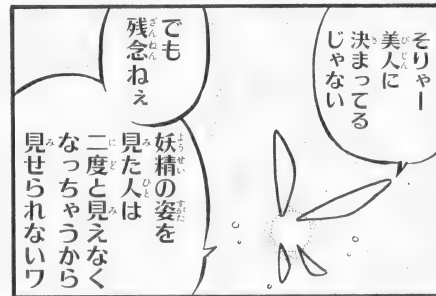 そりゃー
美人に
決まってる
じゃない
でも
残念ねぇ
妖精の姿を
見た人は
二度と見えなく
なっちゃうから
見せられないワ